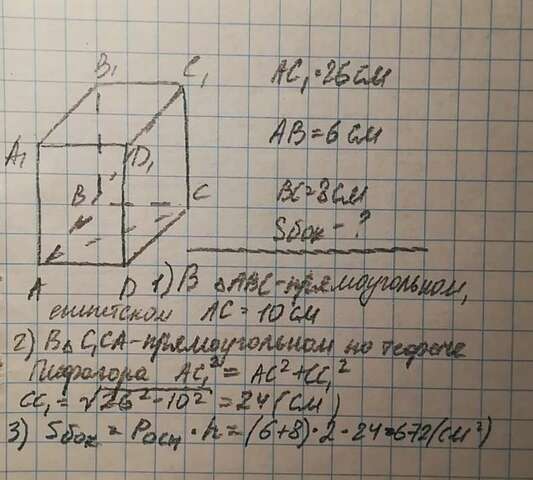 B₁ C₁
A₁ D₁
B C
A D
AC₁ = 26 см
AB = 6 см
BC = 8 см
Sбок - ?
1) В △ABC - прямоугольном,
египетском AC = 10 см
2) В△ C₁CA - прямоугольном по теореме
Пифагора AC₁² = AC² + CC₁²
CC₁ = √26² - 10² = 24 (см)
3) Sбок = Pосн · h = (6+8) · 2 · 24 = 672 (см²)